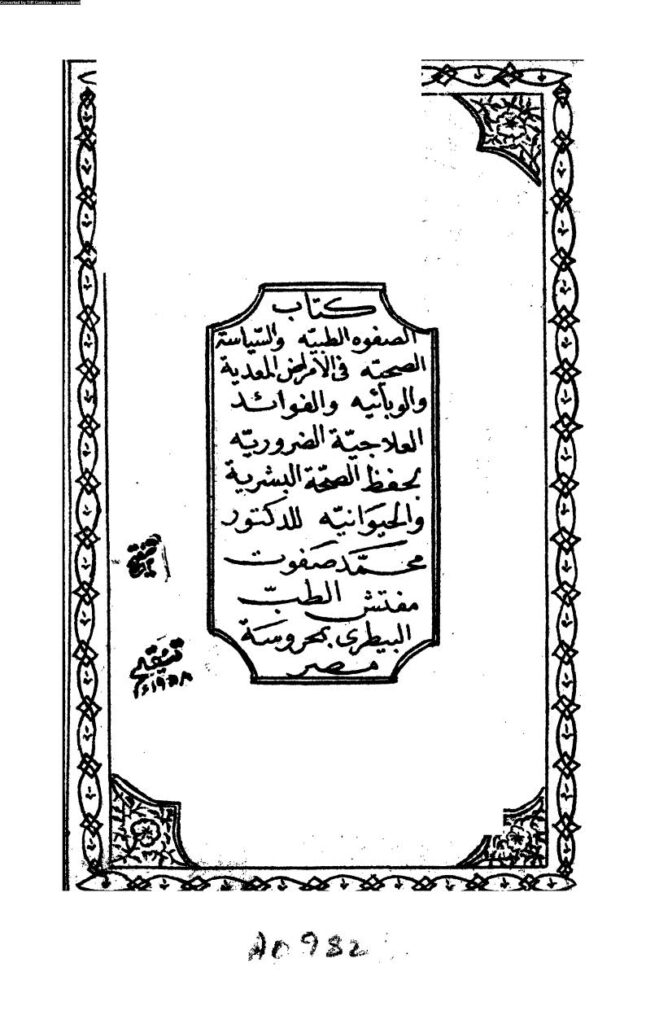 Converted by Tiff Combine - unregistered
كتاب
الصفوه الطبيه والسياسة
الصحيه فى الأمراض المعدية
والوبائيه والفوائد
العلاجية الضروريه
لحفظ الصحة البشرية
والحيوانيه للدكتور
محمد صفوت
مفتش الطب
البيطرى بمحروسة
مصر